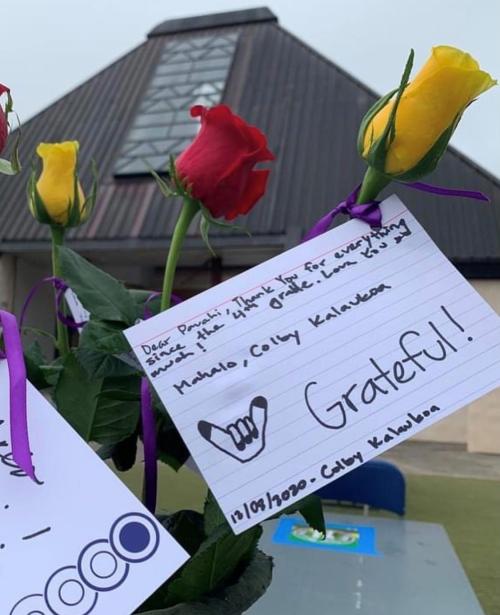 Dear Pauahi, Thank You for everything
since the 4th grade. Love You so
much!
Mahalo, Colby Kalaukoa
Grateful!
12/08/2020 - Colby Kalaukoa